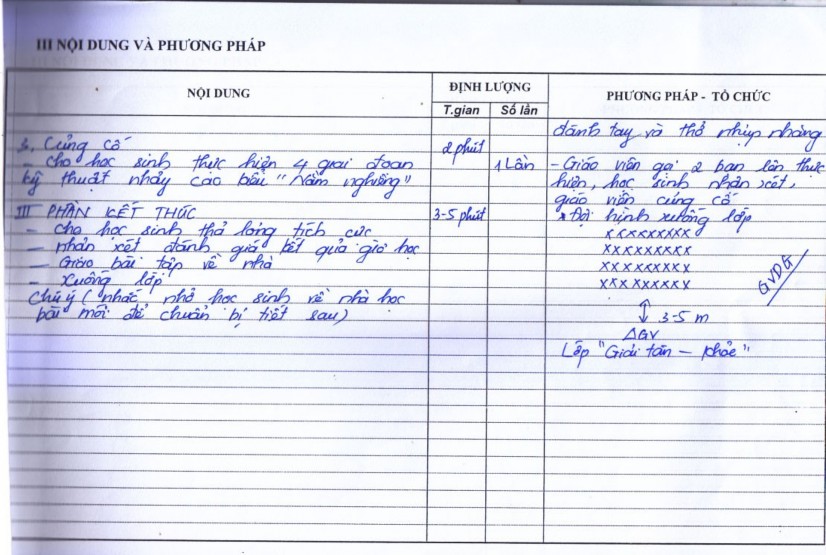 III NỘI DUNG VÀ PHƯƠNG PHÁP
NỘI DUNG
ĐỊNH LƯỢNG
T.gian
Số lần
PHƯƠNG PHÁP - TỔ CHỨC
3. Củng cố
- cho học sinh thực hiện 4 giai đoạn
kỹ thuật nhảy cao kiểu "Nằm nghiêng"
2 phút
1 Lần
III PHẦN KẾT THÚC
3-5 phút
- cho học sinh thả lỏng tích cực
- nhận xét đánh giá kết quả giờ học
- Giao bài tập về nhà
- xuống lớp
chú ý (nhắc nhở học sinh về nhà học
bài mới để chuẩn bị tiết sau)
đánh tay và thở nhịp nhàng
- Giáo viên gọi 2 bạn lên thực
hiện, học sinh nhận xét,
giáo viên củng cố
* Đội hình xuống lớp
xxxxxxxxx
xxxxxxxxx
xxxxxxxxx
xxxxxxxxx
GVDG
3-5 m
ΔGV
Lớp "Giải tán - khỏe"